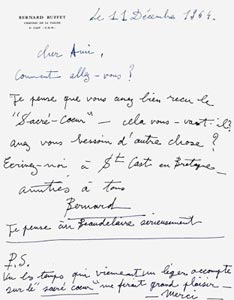 BERNARD BUFFET
Le 11 Décembre 1964.
cher Ami,
Comment allez-vous ?
Je pense que vous avez bien reçu le
"Sacré-Coeur" — cela vous va-t-il ?
avez vous besoin d'autre chose ?
Ecrivez-moi à St Cast en Bretagne
amitiés à tous
Bernard
Je pense au Beaudelaire sérieusement
P.S.
Vu les temps qui viennent un léger accompte
sur le "sacré coeur" me ferait grand plaisir —
— Merci —